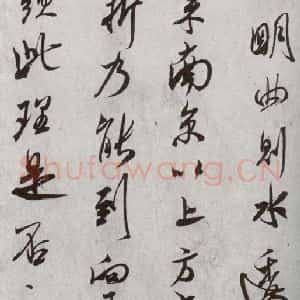 明曲則水透
南京以上方
折乃能到向
此理是否
Shufawang.CN